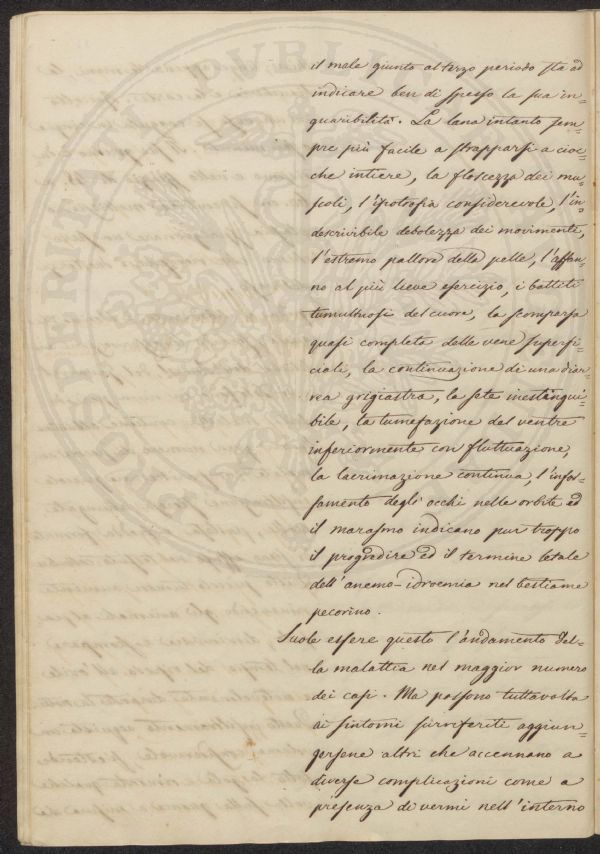 il male giunto al terzo periodo sta ad
indicare ben di spesso la sua in=
guaribilità. La lana intanto sem=
pre più facile a strapparsi a cioc=
che intiere, la floscezza dei mu=
scoli, l'ipotrofia considerevole, l'in=
descrivibile debolezza dei movimenti,
l'estremo pallore della pelle, l'affan=
no al più lieve esercizio, i battiti
tumultuosi del cuore, la scomparsa
quasi completa delle vene superfi=
ciali, la continuazione di una diar=
rea grigiastra, la sete inestingui=
bile, la tumefazione del ventre
inferiormente con fluttuazione,
la lacrimazione continua, l'infos=
samento degli occhi nelle orbite ed
il marasmo indicano pur troppo
il progredire ed il termine letale
dell'anemo-idroemia nel bestiame
pecorino.
Suole essere questo l'andamento del=
la malattia nel maggior numero
dei casi. Ma possono tuttavolta
ai sintomi surriferiti aggiun=
gersene altri che accennano a
diverse complicazioni come a
presenza di vermi nell'interno